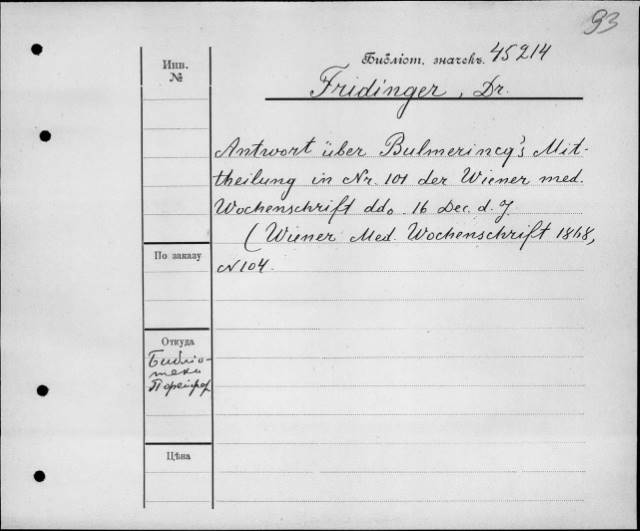 93
Инв.
№
Библіот. значекъ. 45214
Fridinger, Dr.
Antwort über Bulmerincq's Mit-
theilung in Nr. 101 der Wiener med.
Wochenschrift ddo. 16 Dec. d. J.
(Wiener Med. Wochenschrift 1868,
N 104.
По заказу
Откуда
Библіо-
теки
Цѣна